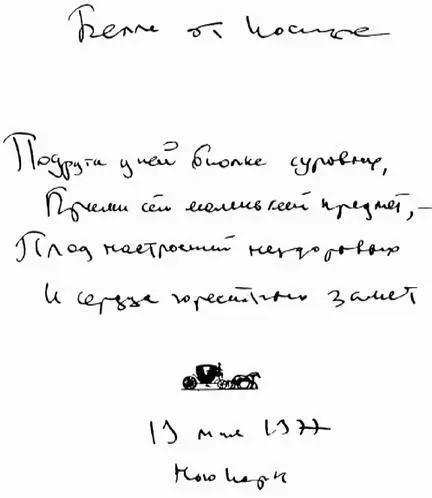 Белле от Иосифа
Подруга дней вполне суровых,
Прими сей маленький предмет,—
Плод настроений нездоровых
И сердца горестных замет
19 мая 1977
Нью Йорк